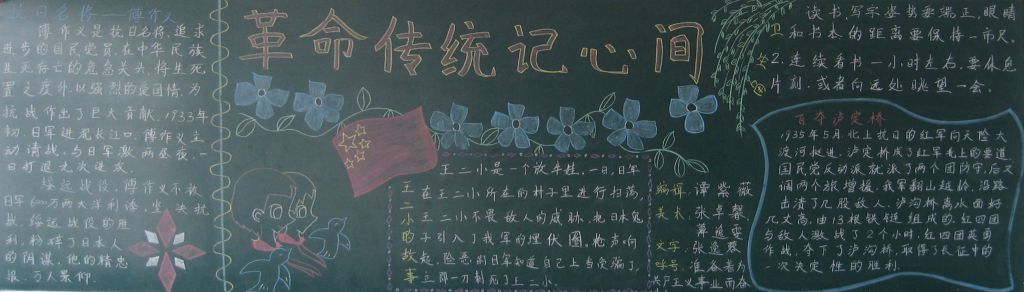 抗日名将——傅作义
傅作义是抗日名将,追求
进步的国民党员,在中华民族
生死存亡的危急关头,将生死
置之度外,以强烈的爱国情,为
抗战作出了巨大贡献.1933年
初,日军进犯长江口,傅作义主
动请战,与日军激两昼夜,一
日打退九次进攻.
绥远战役,傅作义不收
日军600万两大洋利诱,坚决抗
战,绥远战役的胜
利,粉碎了日本人
的阴谋,他的精忠
报,万人景仰.
革命传统记心间
王二小的故事
王二小是一个放牛娃,一日,日军
在王二小所在的村子里进行扫荡,
王二小不畏敌人的威胁,把日本鬼
子引入了我军的埋伏圈,枪声响
起,险恶的日军知道自己上当受骗了,
立即一刀刺死了王二小.
编辑:谭紫薇
美术:张卓馨
文字:张
呼号:准备着为
共产主义事业而奋
卫
读书,写字姿势要端正,眼睛
和书本的距离要保持一市尺.
2.连续看书一小时左右,要休息
片刻,或者向远处眺望一会.
百夺泸定桥
1935年5月,北上抗日的红军向天险大
渡河挺进.泸定桥成了红军北上的要道
国民党反动派就派了两个团防守,后又
调两个旅增援.我军翻山越岭,沿路
击溃了几股敌人,泸沟桥离水面好
几丈高,由13根铁链组成的,红四团
与敌人激战了2个小时,红四团英勇
作战,夺下了泸沟桥,取得了长征中的
一次决定性的胜利